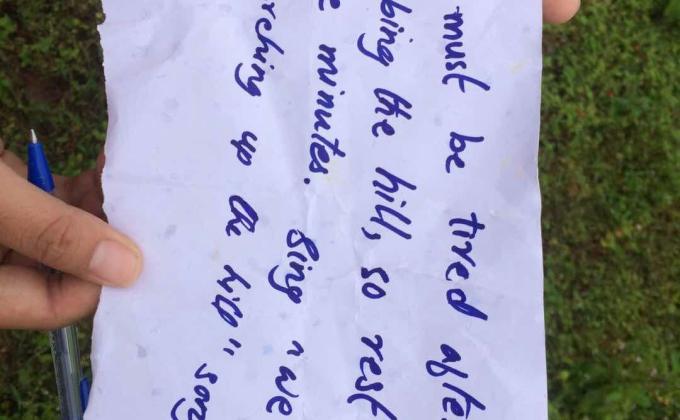 must be tired afte
bing the hill, so rest
e minutes. Sing "we
rching up the hill" son